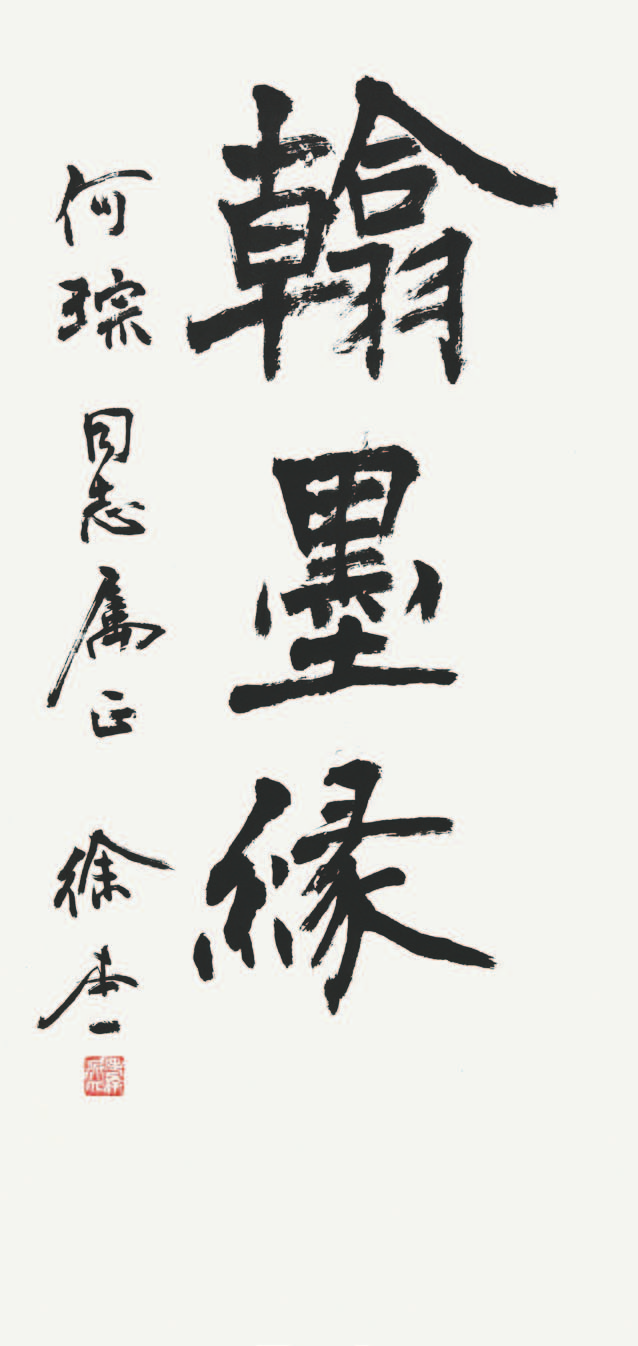 翰墨緣
何琮同志属正 徐本一